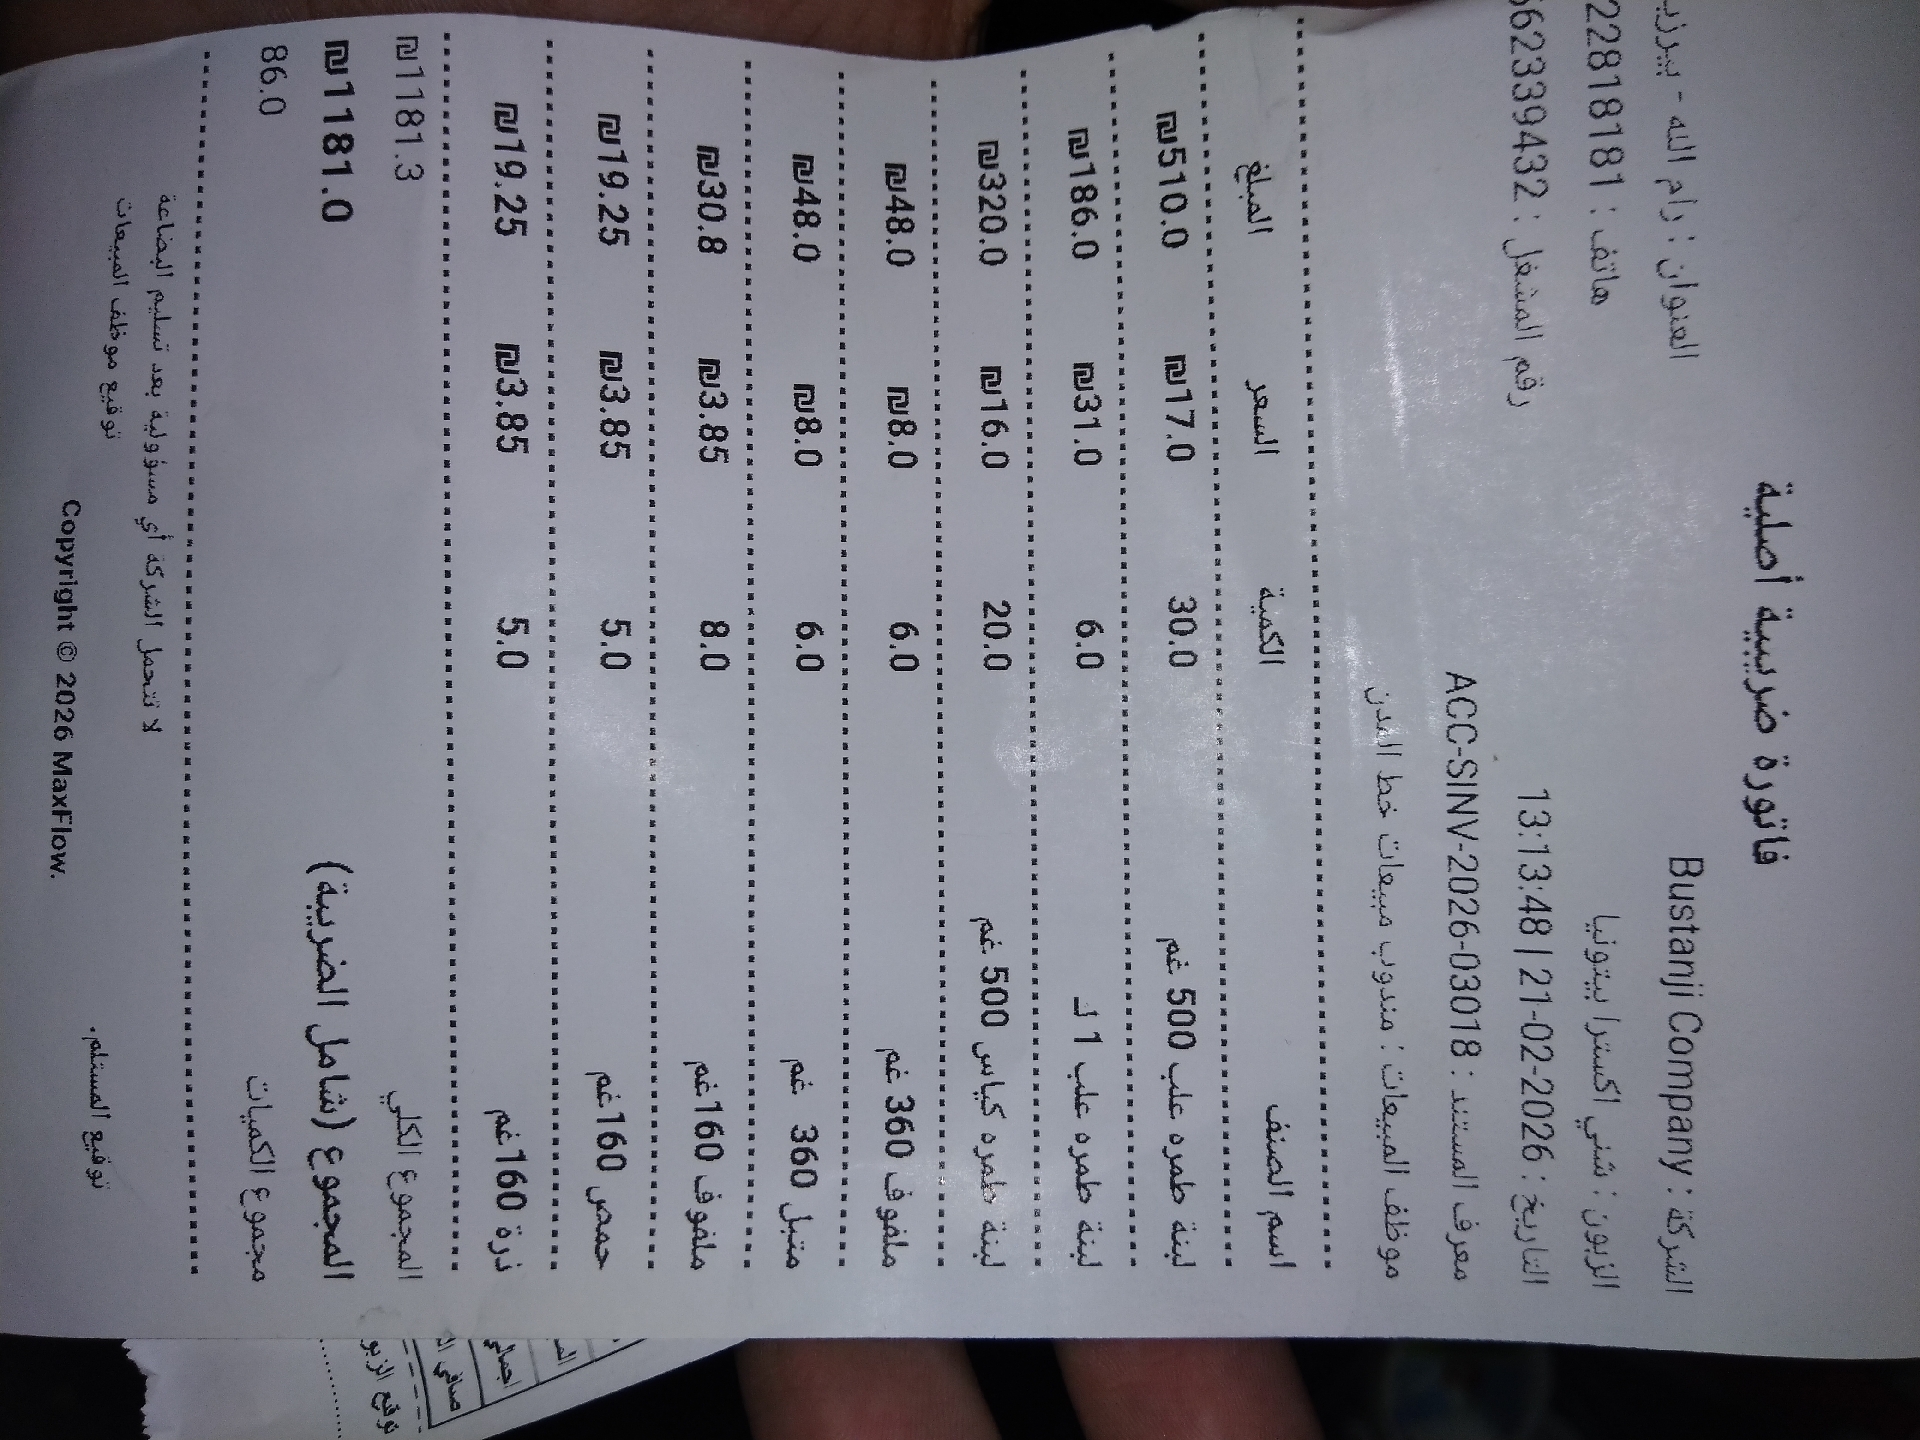 فاتورة ضريبية أصلية
الشركة : Bustanji Company
العنوان : رام الله - بيرزي
الزبون : شني اكسترا بيتونيا
هاتف : 22818181
التاريخ : 2026-02-21 | 13:13:48
رقم المشغل : 562339432
معرف المستند : ACC-SINV-2026-03018
موظف المبيعات : مندوب مبيعات خط المدن
اسم الصنف الكمية السعر المبلغ
لبنة طمره علب 500 غم 30.0 ₪17.0 ₪510.0
لبنة طمره علب 1 لـ 6.0 ₪31.0 ₪186.0
لبنة طمره كياس 500 غم 20.0 ₪16.0 ₪320.0
ملفوف 360 غم 6.0 ₪8.0 ₪48.0
متبل 360 غم 6.0 ₪8.0 ₪48.0
ملفوف 160غم 8.0 ₪3.85 ₪30.8
حمص 160غم 5.0 ₪3.85 ₪19.25
ذرة 160غم 5.0 ₪3.85 ₪19.25
المجموع الكلي ₪1181.3
المجموع (شامل الضريبة) ₪1181.0
مجموع الكميات 86.0
لا تتحمل الشركة أي مسؤولية بعد تسليم البضاعة
توقيع المستلم. توقيع موظف المبيعات
Copyright © 2026 MaxFlow.
اجمالي
صافي ا
توقيع الزبو